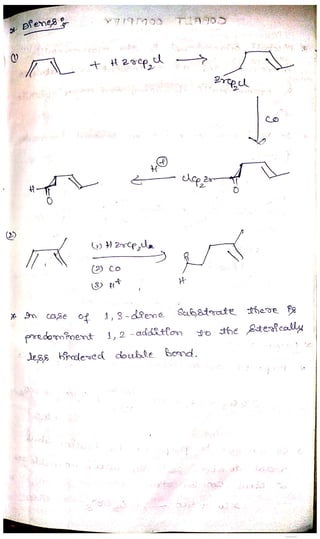 * Dienes :
(1)
+ HZrcp2cl →
Zrcp2cl
CO
H ← H⊕ clcp2Zr
O O
(2)
(1) HZrcp2cl
(2) CO
(3) H+
H
* In case of 1,3-diene Substrate there is
predominent 1,2-addition to the Sterically
less hindered double bond.